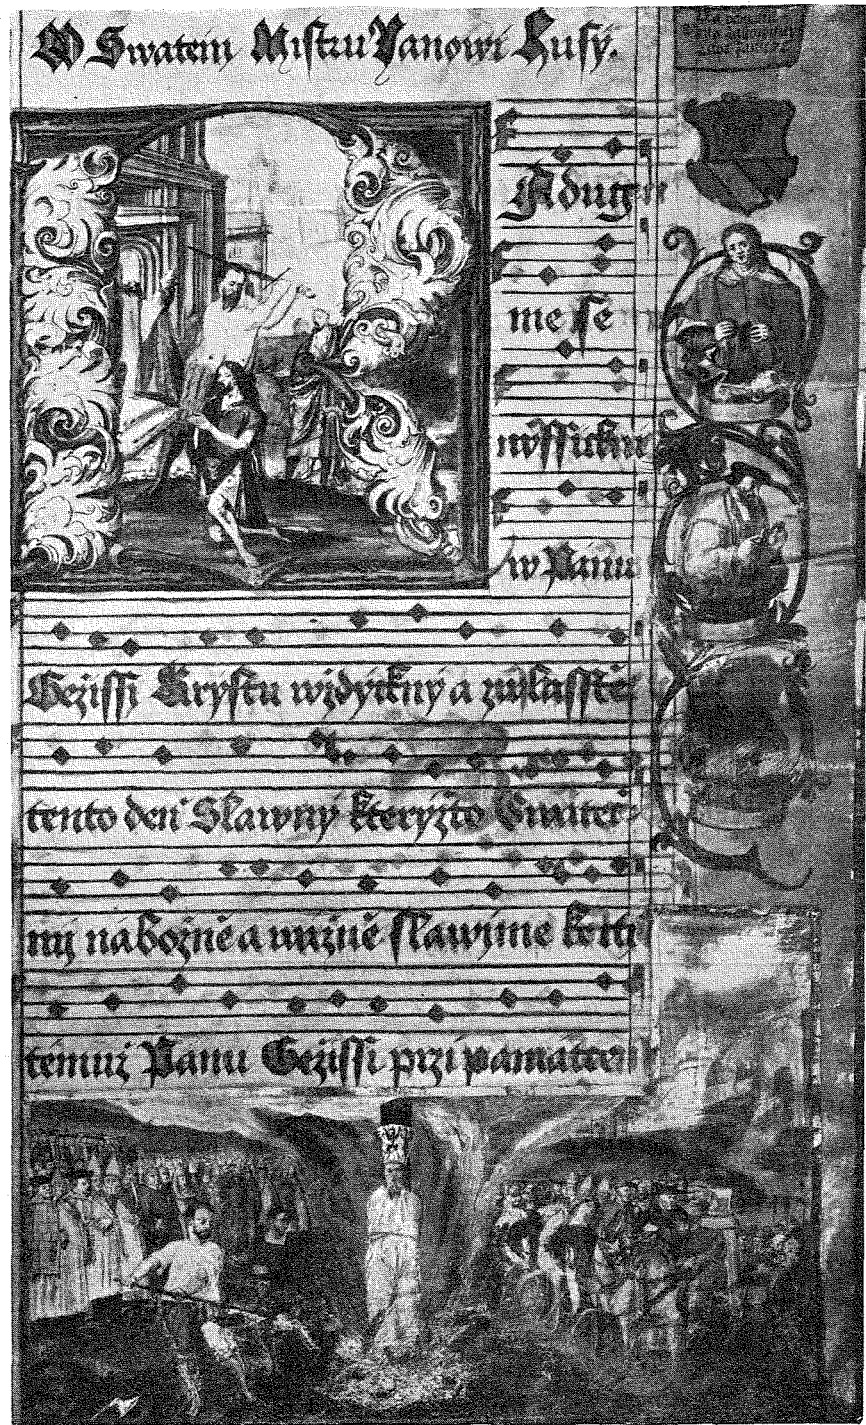 O Swatem Mistru Janowi Husy.
Adugm
me se
wssickni
w Panu
Gezissi Krystu wzdyckny a zwlasstie
tento den Slawny kteryzto
my nabozne a wazne slawyme ktti
temuz Panu Gezissi przi pamatcen